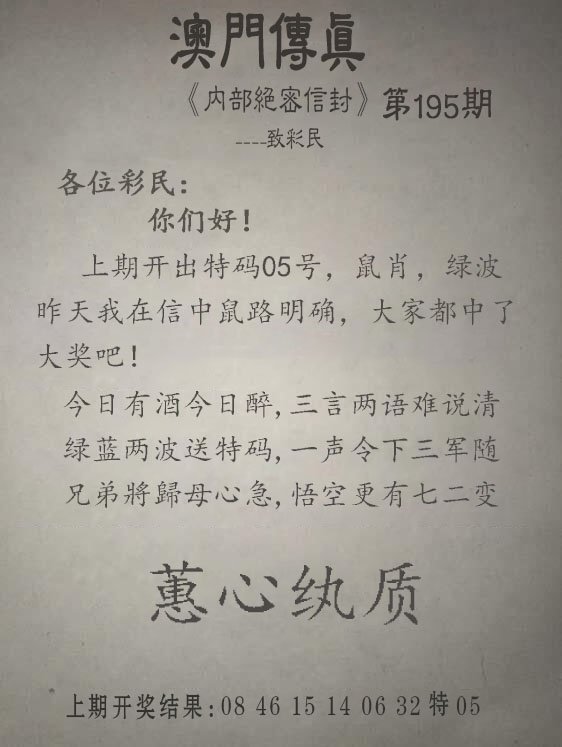 澳門傳眞
《内部絕密信封》第195期
----致彩民
各位彩民：
你们好！
上期开出特码05号，鼠肖，绿波
昨天我在信中鼠路明确，大家都中了
大奖吧！
今日有酒今日醉,三言两语难说清
绿蓝两波送特码,一声令下三军随
兄弟將歸母心急,悟空更有七二变
蕙心纨质
上期开奖结果:08 46 15 14 06 32 特 05